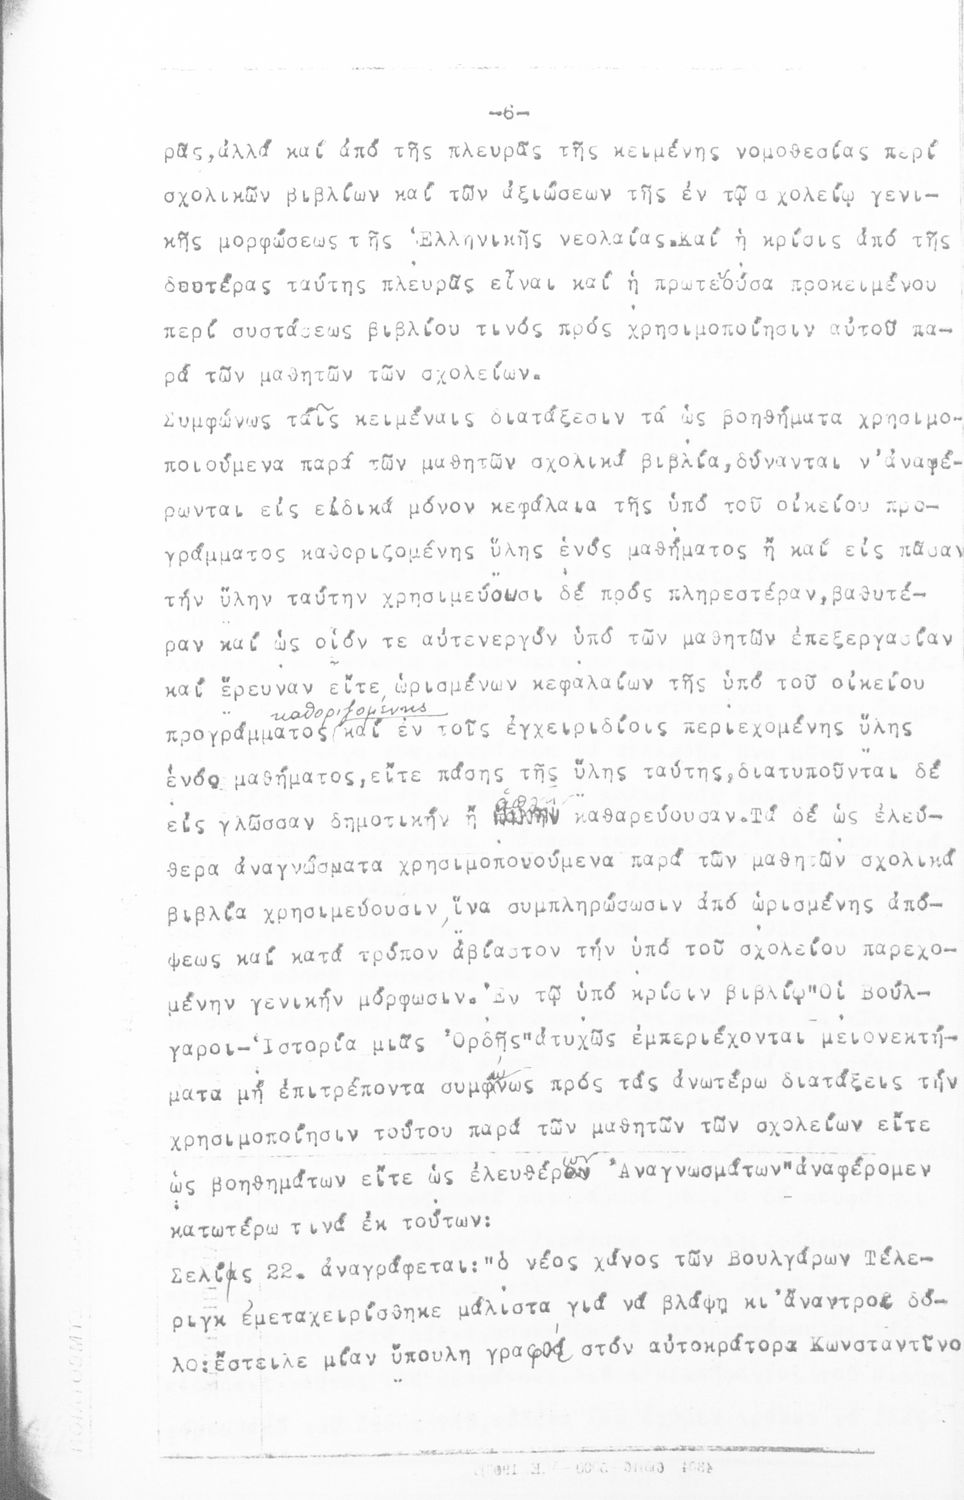 -6-
ρᾶς,ἀλλά καί ἀπό τῆς πλευρᾶς τῆς κειμένης νομοθεσίας περί
σχολικῶν βιβλίων καί τῶν ἀξιώσεων τῆς ἐν τῷ σχολείῳ γενι-
κῆς μορφώσεως τῆς Ἑλληνικῆς νεολαίας.Καί ἡ κρίσις ἀπό τῆς
δευτέρας ταύτης πλευρᾶς εἶναι καί ἡ πρωτεύουσα προκειμένου
περί συστάσεως βιβλίου τινός πρός χρησιμοποίησιν αὐτοῦ πα-
ρά τῶν μαθητῶν τῶν σχολείων.
Συμφώνως ταῖς κειμέναις διατάξεσιν τά ὡς βοηθήματα χρησιμο-
ποιούμενα παρά τῶν μαθητῶν σχολικά βιβλία,δύνανται ν'ἀναφέ-
ρωνται εἰς εἰδικά μόνον κεφάλαια τῆς ὑπό τοῦ οἰκείου προ-
γράμματος καθοριζομένης ὕλης ἑνός μαθήματος ἤ καί εἰς πᾶσαν
τήν ὕλην ταύτην χρησιμεύουσι δέ πρός πληρεστέραν,βαθυτέ-
ραν καί ὡς οἷόν τε αὐτενεργόν ὑπό τῶν μαθητῶν ἐπεξεργασίαν
καί ἔρευναν εἴτε ὡρισμένων κεφαλαίων τῆς ὑπό τοῦ οἰκείου
καθοριζομένης
προγράμματος καί ἐν τοῖς ἐγχειριδίοις περιεχομένης ὕλης
ἑνός μαθήματος,εἴτε πάσης τῆς ὕλης ταύτης,διατυποῦνται δέ
εἰς γλῶσσαν δημοτικήν ἤ ἁπλῆν καθαρεύουσαν.Τά δέ ὡς ἐλεύ-
θερα ἀναγνώσματα χρησιμοποιούμενα παρά τῶν μαθητῶν σχολικά
βιβλία χρησιμεύουσιν,ἵνα συμπληρώσωσιν ἀπό ὡρισμένης ἀπό-
ψεως καί κατά τρόπον ἀβίαστον τήν ὑπό τοῦ σχολείου παρεχο-
μένην γενικήν μόρφωσιν.Ἐν τῷ ὑπό κρίσιν βιβλίῳ"Οἱ Βούλ-
γαροι-Ἱστορία μιᾶς Ὀρδῆς"ἀτυχῶς ἐμπεριέχονται μειονεκτή-
ματα μή ἐπιτρέποντα συμφώνως πρός τάς ἀνωτέρω διατάξεις τήν
χρησιμοποίησιν τούτου παρά τῶν μαθητῶν τῶν σχολείων εἴτε
ὡς βοηθημάτων εἴτε ὡς ἐλευθέρων Ἀναγνωσμάτων"ἀναφέρομεν
κατωτέρω τινά ἐκ τούτων:
Σελίς 22. ἀναγράφεται:"ὁ νέος χάνος τῶν Βουλγάρων Τέλε-
ριγκ ἐμεταχειρίσθηκε μάλιστα γιά νά βλάψῃ κι'ἄναντρο δό-
λο:ἔστειλε μίαν ὕπουλη γραφή στόν αὐτοκράτορα Κωνσταντῖνο